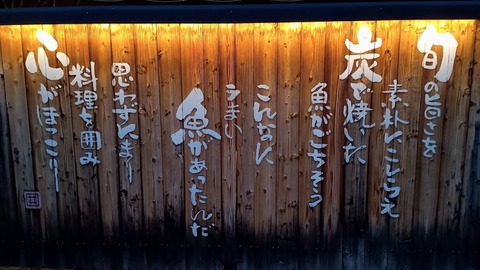 旬の旨さを
素朴にこしらえ
炭で焼いた
魚がごちそう
こんなに
うまい
魚があったんだ
思わずんまー
料理を囲み
心がほっこりー